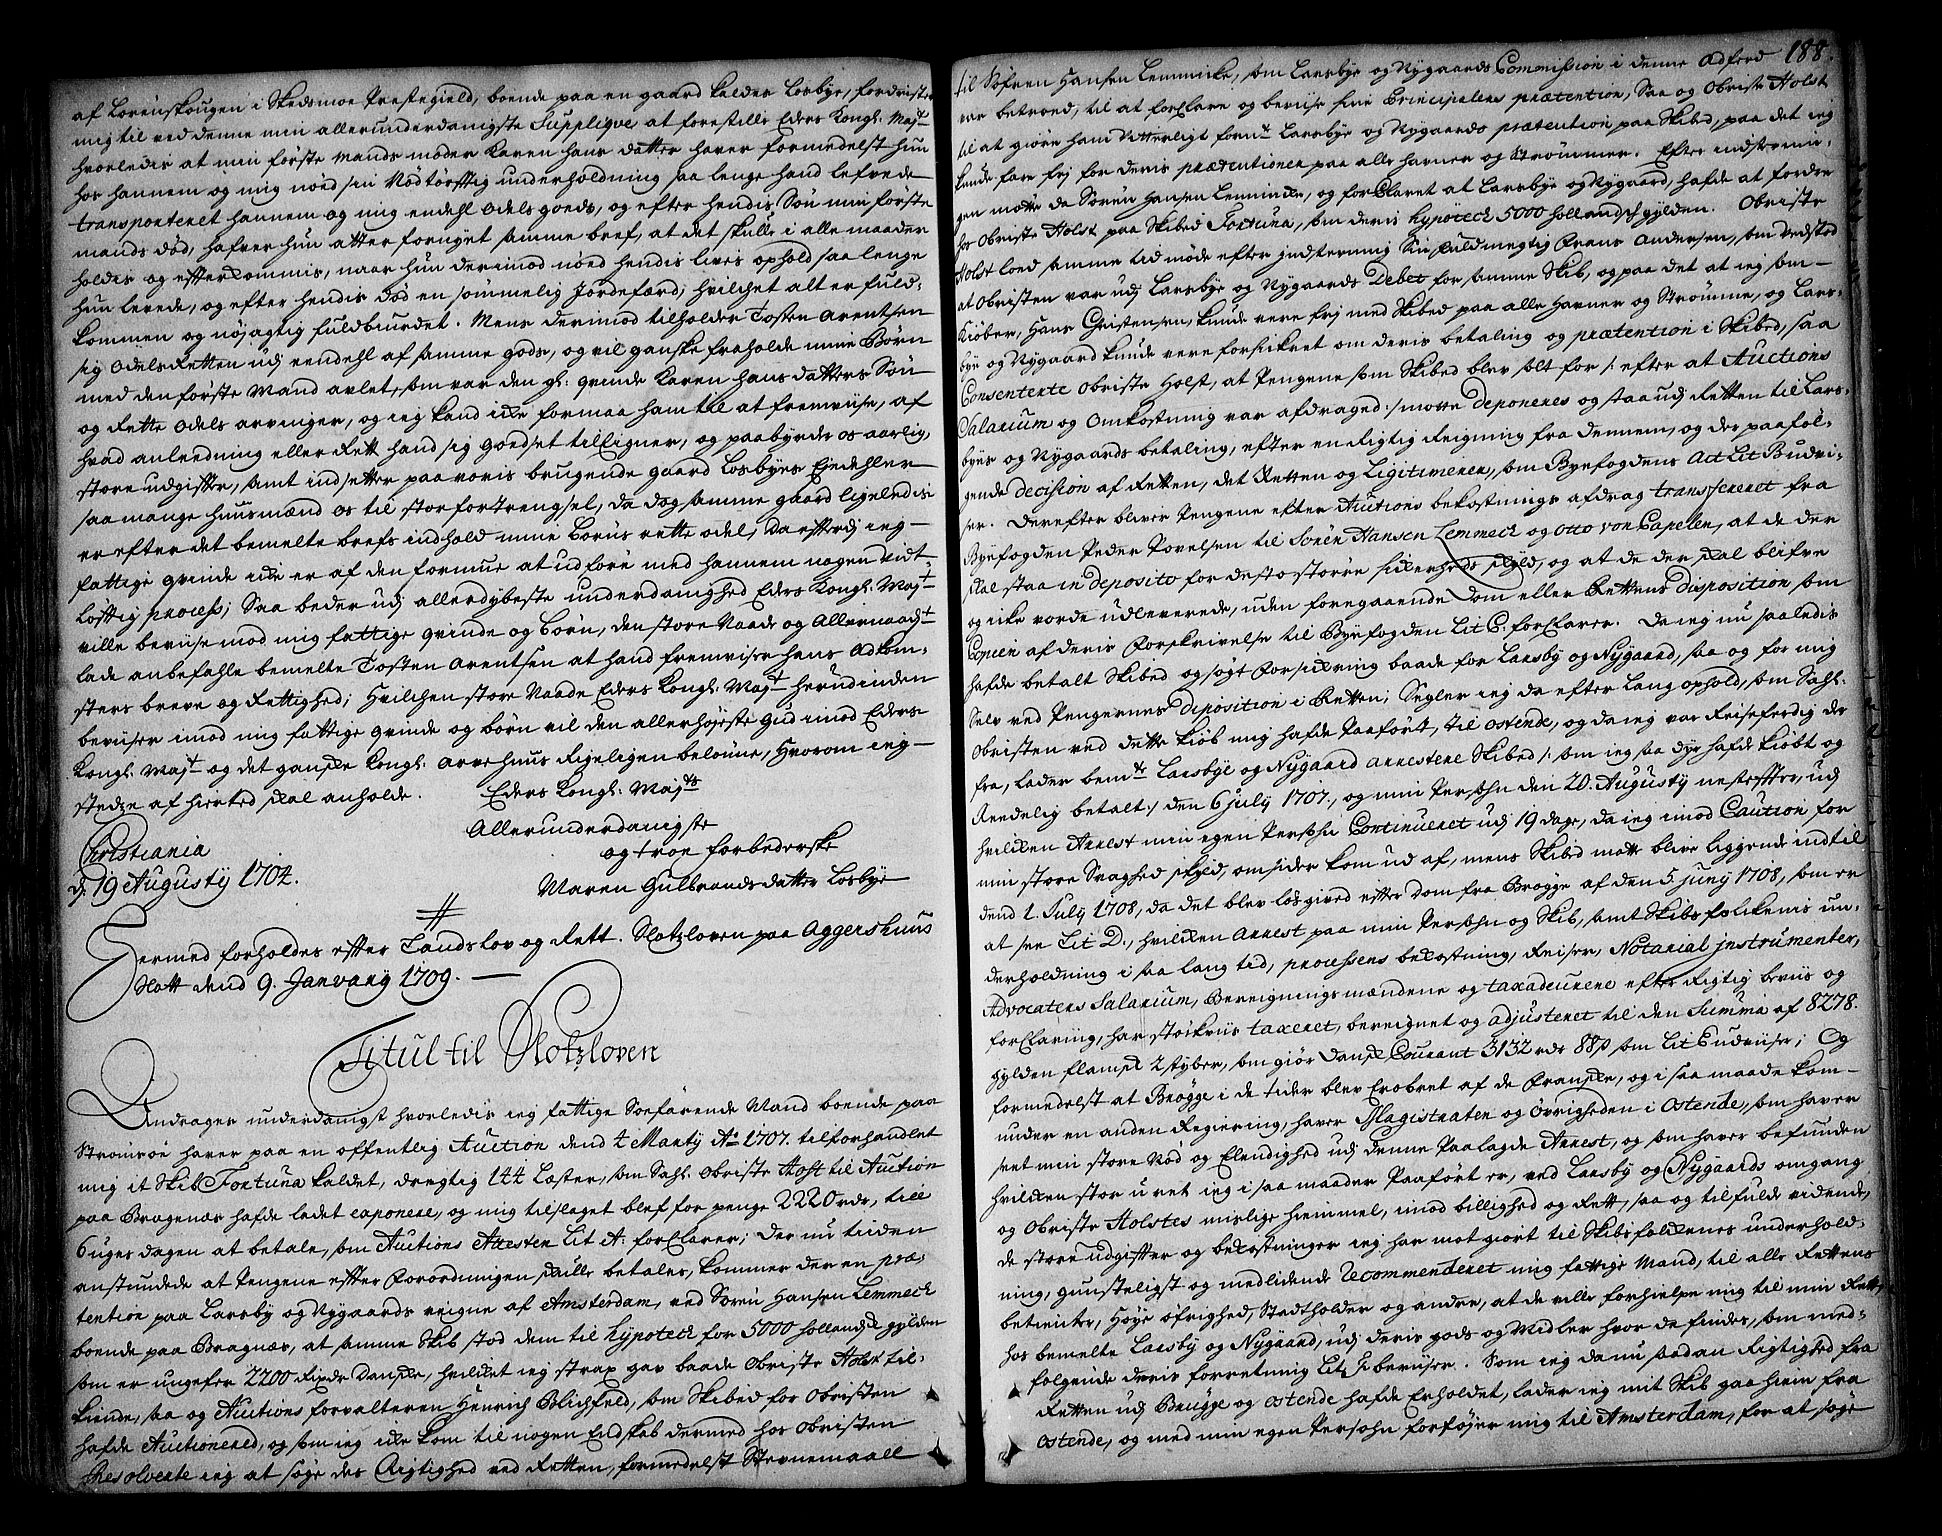 af Lorenskougen i Skedsmoe Prestegield, boende paa en gaard kaldes Losbye, fordrister
mig til ved denne min allerunderdanigste Supplique at forestille Eders Kongl: Mayt
hvorledis at min förste mands moder Karen Hans datter haver formedelst hun
hos hannem og mig nöed sin Nödtörfftig underholdning saa lenge hand lefvede
transporteret hannem og mig endehl Odels goeds, og efter hendis Sön min förste
mands död, hafver hun atter fornyet samme bref, at det skulle i alle maader
holdis og efterkommis, naar hun derimod nöed hendis lives ophold saa lenge
hun levede, og efter hendis död en sömmelig Jordefærd; hvilchet alt er fuld-
kommen og nöjagtig fuldbiurdet. Mens derimod tilholder Tosten Arentsen
sig Odels Retten udj eendehl af samme gods, og vil ganske fraholde mine Börn
med den förste Mand avlet, som var den gl: qvinde Karen Hansdatters Sön
og Rette Odels arvinger, og ieg kand icke formaa ham til at fremviise, af
hvad anleedning eller Rett hand sig goedset tilEigner, og paabyrder os aarlig
store udgiffter, samt indsetter paa voris brugende gaard Losbyes Eyedehler
saa mange huusmænd os til stor fortrengsel, da dog samme gaard ligeledis
er efter det bemelte brefs indhold mine Börns rette odel, Da effterdj ieg
fattige qvinde icke er af den formue at udföre med hannem nogen vidt-
löfftig process; Saa beder udj allerdybeste underdanighed Eders Kongl: Mayt
ville beviise mod mig fattige qvinde og börn, den store Naade og Allernaadt
lade anbefahle bemelte Tosten Arentsen at hand fremviser hans Adkom-
sters breve og Rettighed; Hvilchen store Naade Eders Kongl: Mayt herudinden
beviiser imod mig fattige qvinde og börn vil den allerhöjeste Gud imod Eders
Kongl: Mayt og det gandske Kongl: Arvehuus Rigeligen belönne, Hvorom ieg
stedze af hierted skal anholde. Eders Kongl: Mayts
Allerunderdanigste
Christiania og troe forbederske
d. 19 Augustij 1704. Maren Gulbrandsdatter Losbye
Hermed forholdes effter Landslov og Rett. Slotzloven paa Aggershuus
Slott dend 9. Janvarij 1709.
Titul til Slotzloven
Andrager underdanigst hvorledis ieg fattige Soefarende Mand boende paa
Strömsöe haver paa en offentlig Auction dend 4 Martij Ao 1707. tilforhandlet
mig it Skib Fortuna kaldet, dregtig 144 Læster, som Sahl: Obriste Holst til Auction
paa Bragenæs hafde ladet exponere, og mig tilslaget blef for penge 2220 rdr, till
6 uges dagen at betale, som Auctions Attesten Lit A: forklarer; Der nu tiiden
anstundede at Pengene effter Forordningen skulle betales, kommer der en præ-
tention paa Larsby og Nygaards veigne af Amsterdam, ved Sören Hansen Lemmech
boende paa Bragnæs, at samme Skib stod dem til hypotech for 5000 hollandske gylden
som er ungefer 2200 Rixdr Danske, hvilket ieg strax gav baade Obriste Holst til-
kiende, saa og Auctions forvalteren Henrich Blichfeld, som Skibed for Obristen
hafde Auctionered, og som ieg icke kom til nogen Endskab dermed hos Obristen
Resolverte ieg at söge des Rigtighed ved Retten, formedelst Stevnemaall
188.
til Sören Hansen Lemmiche, som Larsbye og Nygaards Commission i denne adferd
var betroed, til at forklare og beviise sine Principalens prætention, Saa og Obriste Holst
til at giöre ham Vitterligt fornt Larsbye og Nygaards prætention paa Skibed, paa det ieg
kunde fare frj for deris prætentioner paa alle havner og Strömmer. Efter indstevnin-
gen mötte da Sören Hansen Lemmicke, og forklaret at Larsbye og Nygaard, hafde at fordre
hos Obriste Holst paa Skibed Fortuna, som deris hypotech 5000 hollandsch gylden. Obriste
Holst loed samme tid möde efter indstevning Sin fuldmegtig Frans Andersen, som vedstod
at Obristen var udj Larsbye og Nygaards Debet for samme Skib, og paa det at ieg som
Kiöber, Hans Christensen, kunde vere frj med Skibed paa alle Havner og Strömme, og Lars-
bye og Nygaard kunde vere forsickret om deris betaling og prætention i Skibed, saa
Consenterte Obriste Holst, at Pengene som Skibed blev solt for /: efter at Auctions
Salarium og Omkostning var afdraged :/ motte deponeres og staa udj Retten til Lars-
byes og Nygaards betaling, efter en Rigtig Reigning fra dennem, og der paaföl-
gende decision af Retten, det Retten og Ligitimeren, som Byefogdens Act Lit B udvi-
ser. Derefter bliver Pengene efter Auctions bekostnings afdrag transfereret fra
Byefogden Peder Povelsen til Sören Hansen Lemmech og Otto von Capelen, at de der
skal staa in deposito for desto större sickerheds skyld, og at de der skal blifve
og icke vorde udleverede, uden foregaaende Dom eller Rettens disposition som
Copien af deris Forskrivelse til Byefogden Lit C. forklarer. Da ieg nu saaledis
hafde betalt Skibed og sögt Forsickring baade for Larsby og Nygaard, saa og for mig
Selv ved Pengernes diposition i Retten; Segler ieg da efter lang ophold, som Sahl:
Obristen ved dette kiöb mig hafde Paafört, til Ostende, og da ieg var Reisefærdig der
fra, lader bemt Larsbye og Nygaard arrestere Skibed /: som ieg saa dyr hafde kiöbt og
Reedelig betalt :/ den 6 July 1707., og min Persohn den 20. Augustij nesteffter, udj
hvilken Arrest min egen Persohn Continueret udj 19 dage, da ieg imod Caution for
min store Svaghed skyld, omsider kom ud af, mens Skibed motte blive liggende indtil
dend 1. July 1708, da det blev lösgived effter Dom fra Brögge af den 5. Juny 1708, som er
at see Lit D., hvilken Arrest paa min Persohn og Skib, samt Skibsfolckenis un-
derholdning i saa lang tid, processens bekostning, Reiser, Notarial jnstrumenter,
Advocatens Salarium, Bereigningsmændene og taxadeurene efter Rigtig beviis og
forklaring, har stöckviis taxeret, bereignet og adjusteret til den Summa af 8278.
gylden flamsk 2 styber, som giör Dansk Courant 3132 rdr 88 s som Lit E udviiser; Og
formedelst at Brögge i de tider blev Erobret af de Franske, og i saa maade kom
under en anden Regiering, haver Magistraten og Övrigheden i Ostende, som haver
seet min store Nöd og Elendighed udj denne Paalagde Arrest, og som haver befunden
hvilken stor uret ieg i saa maader Paafört er, ved Larsby og Nygaards omgang
og Obriste Holstes mislige hiemmel, imod billighed og Rett, saa og tilfulde vidende,
de store udgiffter og bekostninger ieg har mot giort til Skibsfolckenes underhold-
ning, gunsteligst og medlidende Recommenderet mig fattige Mand, til alle Rettens
betienter, Höje öfrighed, Stadtholder og andre, at de ville forhielpe mig til min Rett
hos bemelte Larsby og Nygaard, udj deris gods og Midler hvor de findes, som med-
fölgende deris forretning Lit F beviiser. Som ieg da nu saadan Rigtighed fra
Retten udj Brügge og Ostende hafde Erholdet, lader ieg mit Skib gaa hiem fra
Ostende, og med min egen Persohn forföjer mig til Amsterdam, for at söge